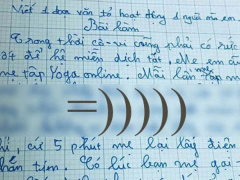 Viết 1 đoạn văn tả hoạt động 1 người mà em
Bài làm
Trong thời cô-vi cũng phải có sức
để hệ miễn dịch tốt. Mẹ em
mẹ tập Yoga online. Mỗi lần tập mẹ
=)))))
cứ 5 phút mẹ lại lấy điện
nhắn tin. Có lúc bạn mẹ gọi